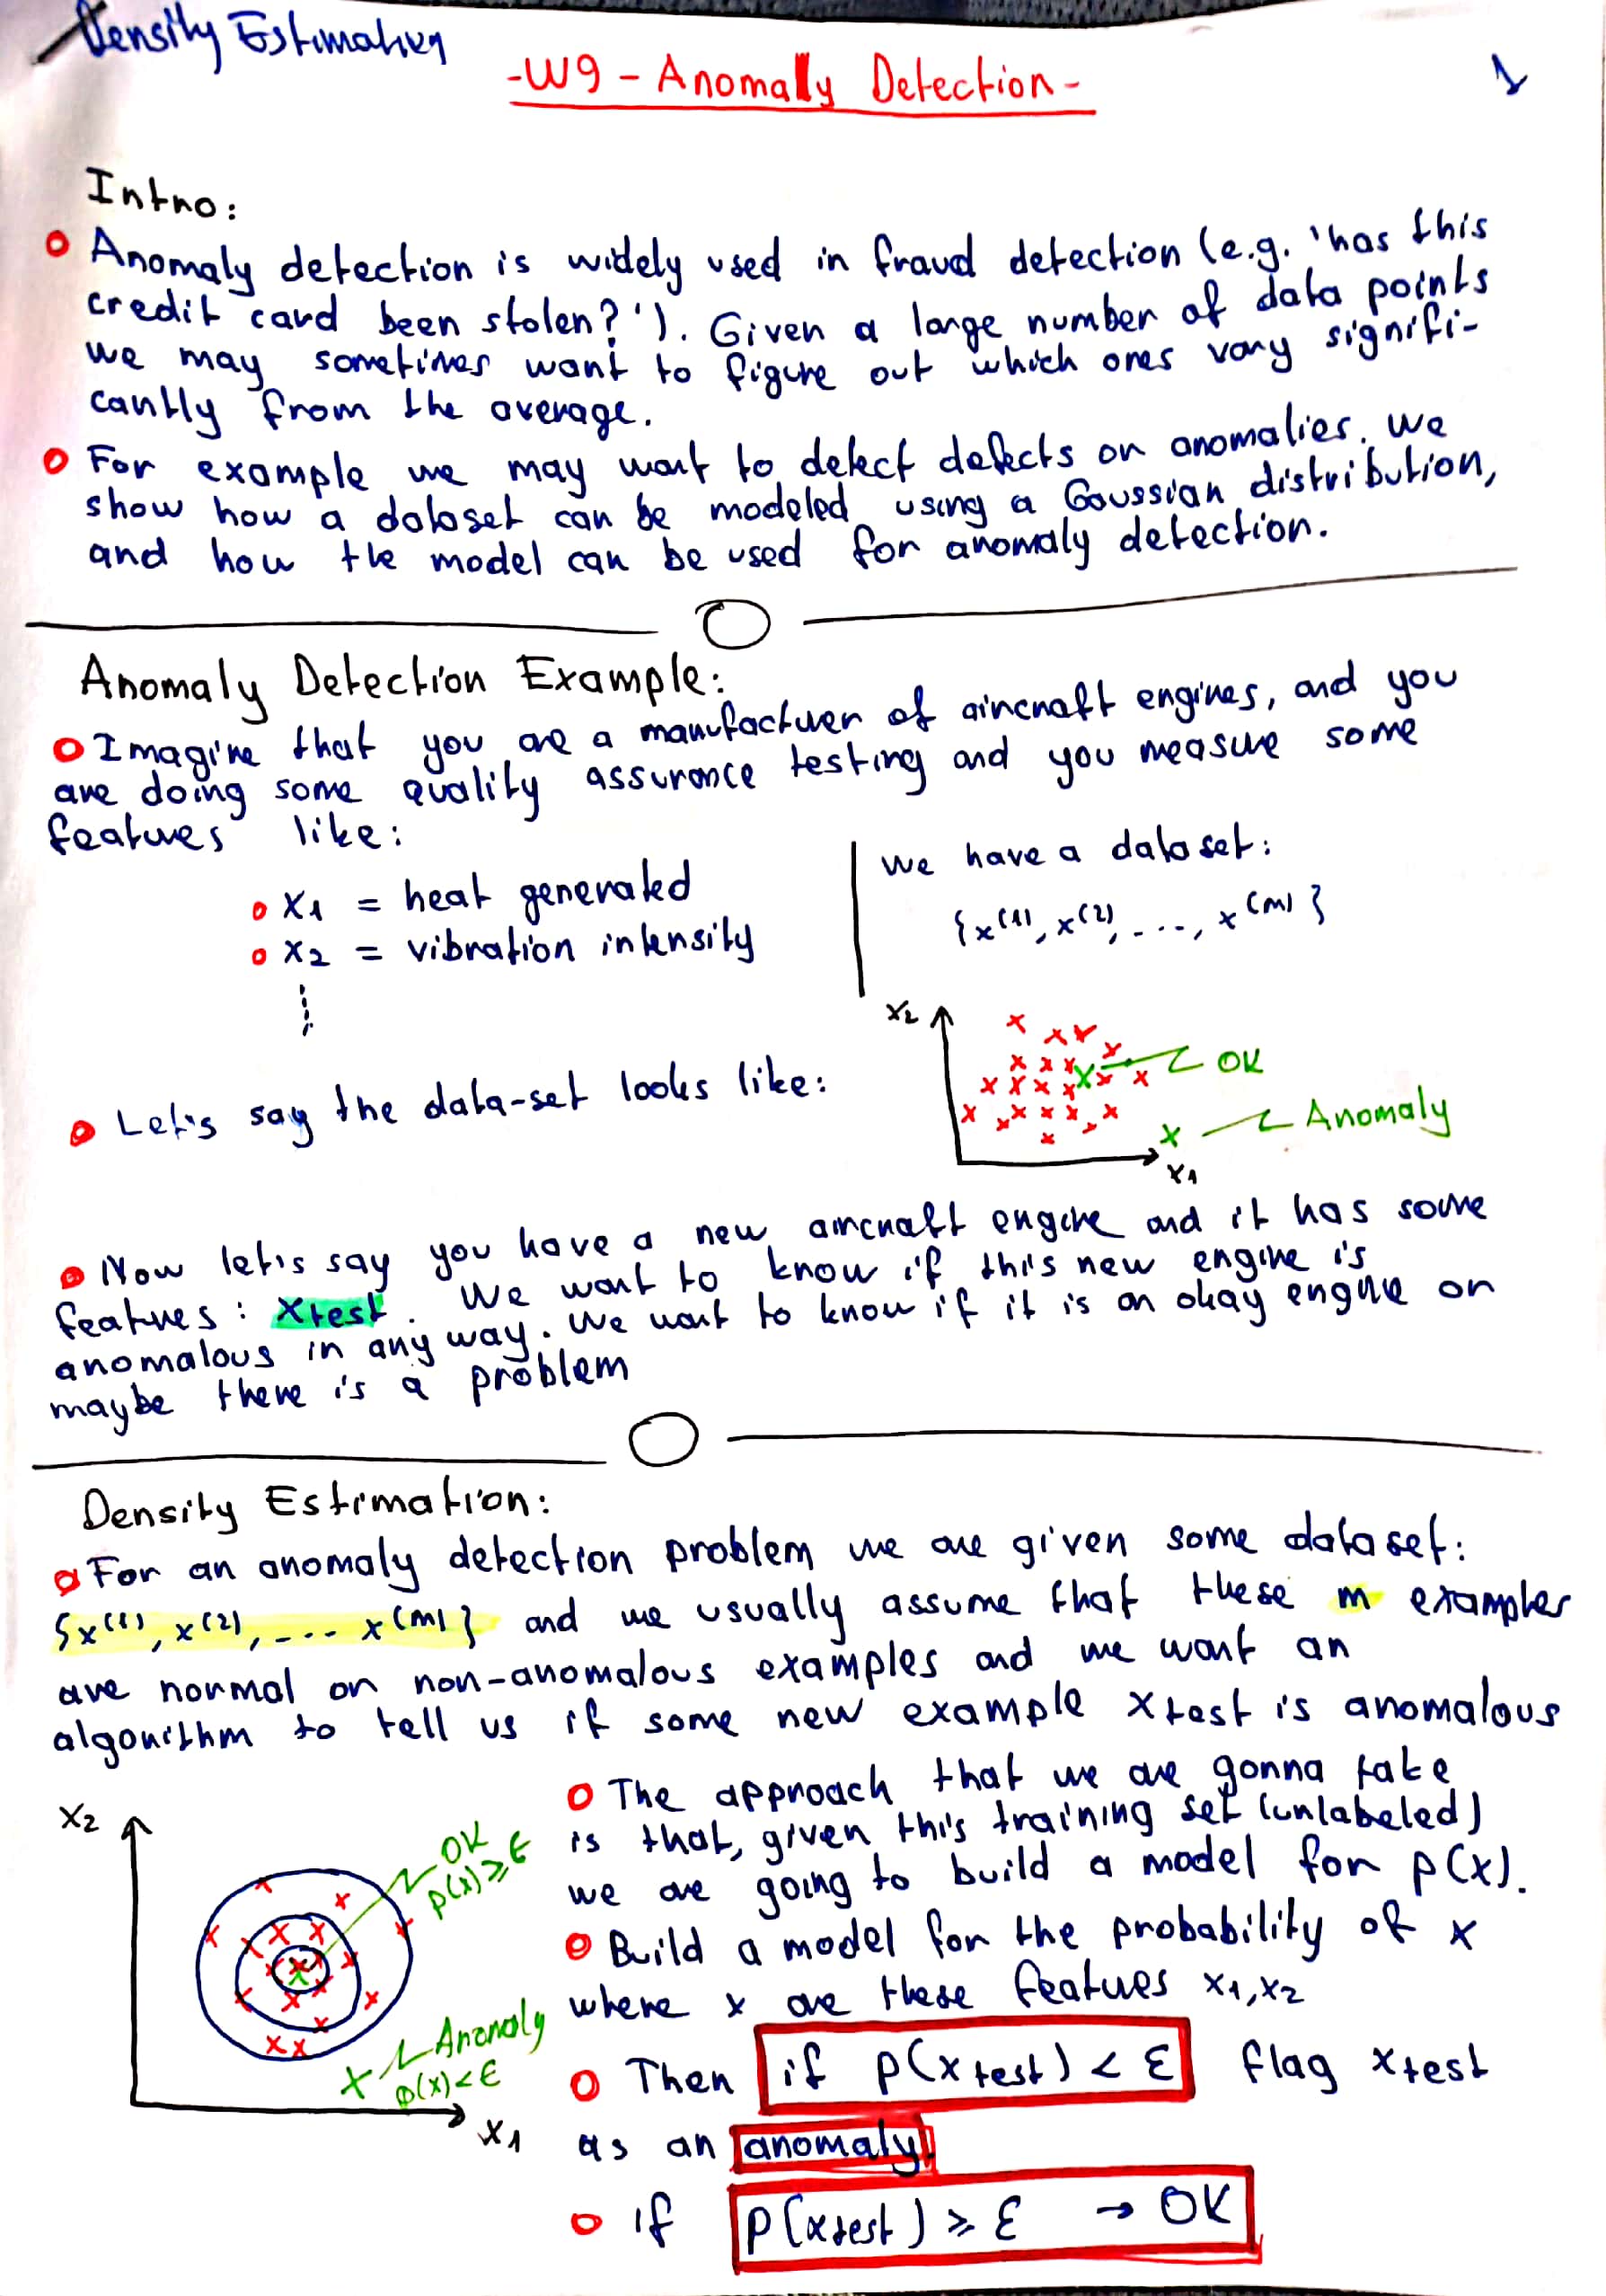 Density Estimation
-W9 - Anomaly Detection-
1
Intro:
Anomaly detection is widely used in fraud detection (e.g. 'has this
credit card been stolen?'). Given a large number of data points
we may sometimes want to figure out which ones vary signifi-
cantly from the average.
For example we may want to detect defects or anomalies. We
show how a dataset can be modeled using a Gaussian distribution,
and how the model can be used for anomaly detection.
Anomaly Detection Example:
Imagine that you are a manufactuer of aircraft engines, and you
are doing some quality assurance testing and you measure some
features like:
x1 = heat generated
x2 = vibration intensity
We have a dataset:
{x(1), x(2), ..., x(m)}
Let's say the data-set looks like:
x2
OK
Anomaly
x1
Now let's say you have a new aircraft engine and it has some
features: xtest. We want to know if this new engine is
anomalous in any way. We want to know if it is an okay engine or
maybe there is a problem
Density Estimation:
For an anomaly detection problem we are given some dataset:
{x(1), x(2), ... x(m)} and we usually assume that these m examples
are normal or non-anomalous examples and we want an
algorithm to tell us if some new example xtest is anomalous
x2
OK
p(x) ≥ ε
Anomaly
p(x) < ε
x1
The approach that we are gonna take
is that, given this training set (unlabeled)
we are going to build a model for p(x).
Build a model for the probability of x
where x are these features x1, x2
Then if p(xtest) < ε flag xtest
as an anomaly.
if p(xtest) ≥ ε → OK